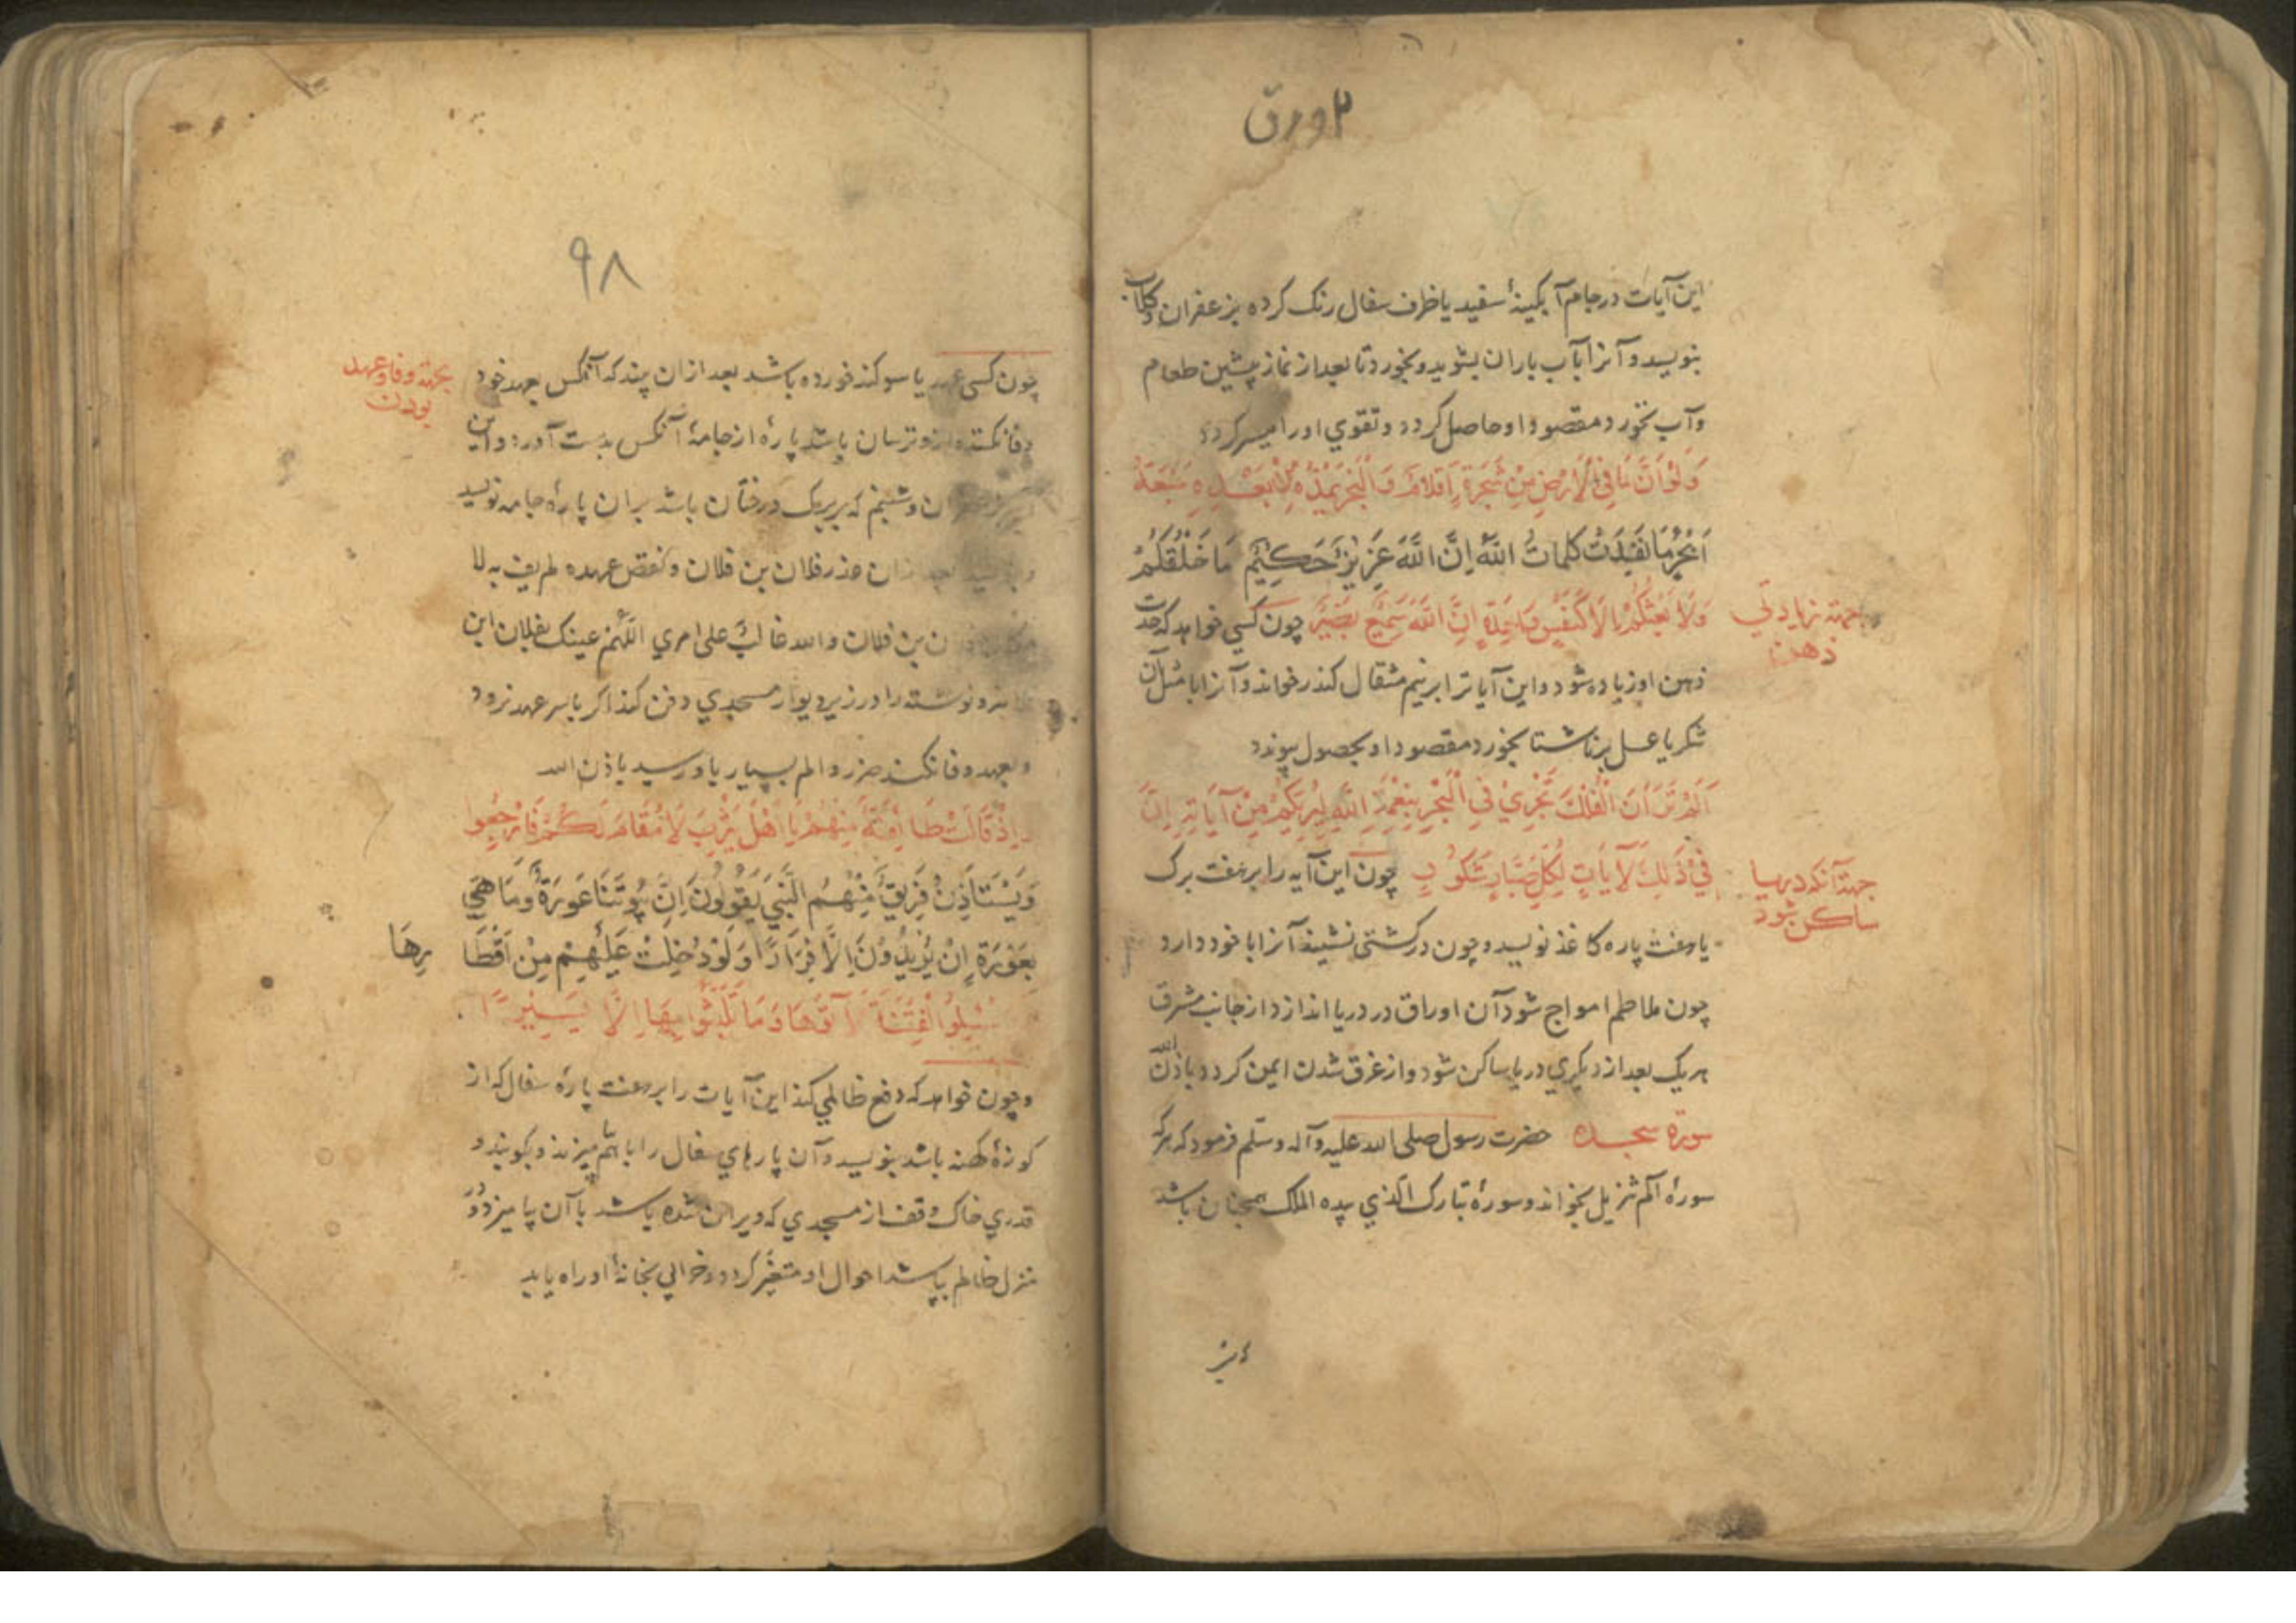 ۲ ورق
این آیات در جام آبگینهٔ سفید یا ظرف سفال رنک کرده بزعفران وکلاب
بنویسد و آنرا بآب باران بشوید و بخورد تا بعد از نماز پیشین طعام
و آب نخورد مقصود او حاصل کردد و تقوي او را میسر کردد
وَلَوْ اَنَّ مَا فِي الْاَرْضِ مِنْ شَجَرَةٍ اَقْلَامٌ وَالْبَحْرُ يَمُدُّهُ مِنْ بَعْدِهِ سَبْعَةُ
اَبْحُرٍ مَا نَفِدَتْ كَلِمَاتُ اللّٰهِ اِنَّ اللّٰهَ عَزِيْزٌ حَكِيْمٌ مَا خَلْقُكُمْ
وَلَا بَعْثُكُمْ اِلَّا كَنَفْسٍ وَاحِدَةٍ اِنَّ اللّٰهَ سَمِيْعٌ بَصِيْرٌ چون کسي خواهد که حدت
جهتة زیادتي
ذهن
ذهن او زیاده شود و این آیاترا بر نیم مثقال کندر خواند و آنرا با مثل آن
شکر یا عسل برناشتا بخورد مقصود او بحصول پیوندد
اَلَمْ تَرَ اَنَّ الْفُلْكَ تَجْرِيْ فِي الْبَحْرِ بِنِعْمَةِ اللّٰهِ لِيُرِيَكُمْ مِنْ آيَاتِهِ اِنَّ
فِيْ ذٰلِكَ لَآيَاتٍ لِكُلِّ صَبَّارٍ شَكُوْرٍ چون این آیه را بر هفت برک
جهتة آنکه دریا
ساکن شود
یا هفت پاره کاغذ نویسد و چون در کشتی نشیند آنرا با خود دارد
چون طاطم امواج شود آن اوراق در دریا اندازد از جانب مشرق
هریک بعد از دیکري دریا ساکن شود و از غرق شدن ایمن کردد باذن الله
سورة سجده حضرت رسول صلی الله علیه وآله وسلم فرمود که هرکه
سورهٔ الم تنزیل بخواند و سورهٔ تبارک الذي بیده الملک همچنان باشد
۹۸
چون کسی عهد یا سوکند خورده باشد بعد از ان بیند که آنکس بعهد خود
بجهتة وفا وعهد
بودن
وفا نکند و ازو ترسان باشد پارهٔ از جامهٔ آنکس بدست آورد و این
ان و شبنم که بربرک درختان باشد بران پارهٔ جامه نویسد
عذر فلان بن فلان و نقض عهده لم یف به لا
ن بن فلان والله غالب علی امري اللهم عینک بفلان این
نوشته را در زیر دیوار مسجدي دفن کند اکر با سر عهد نرود
و بعهد وفا نکند ضرر و الم بسیار باو رسد باذن الله
وَاِذْ قَالَتْ طَائِفَةٌ مِنْهُمْ يَا اَهْلَ يَثْرِبَ لَا مُقَامَ لَكُمْ فَارْجِعُوا
وَيَسْتَأْذِنُ فَرِيْقٌ مِنْهُمُ النَّبِيَّ يَقُوْلُوْنَ اِنَّ بُيُوتَنَا عَوْرَةٌ وَمَا هِيَ
بِعَوْرَةٍ اِنْ يُرِيْدُوْنَ اِلَّا فِرَارًا وَلَوْ دُخِلَتْ عَلَيْهِمْ مِنْ اَقْطَا رِهَا
سُئِلُوا الْفِتْنَةَ لَآتَوْهَا وَمَا تَلَبَّثُوا بِهَا اِلَّا يَسِيْرًا
و چون خواهد که دفع ظالمي کند این آیات را بر هفت پارهٔ سفال که از
کوزهٔ کهنه باشد بنویسد و آن پارهاي سفال را با هم بیزند و بکوبند و
قدري خاک وقف از مسجدي که ویران شده باشد با آن بیامیزد و در
منزل ظالم بپاشد احوال او متغیر کردد و خرابي بخانهٔ او راه یابد